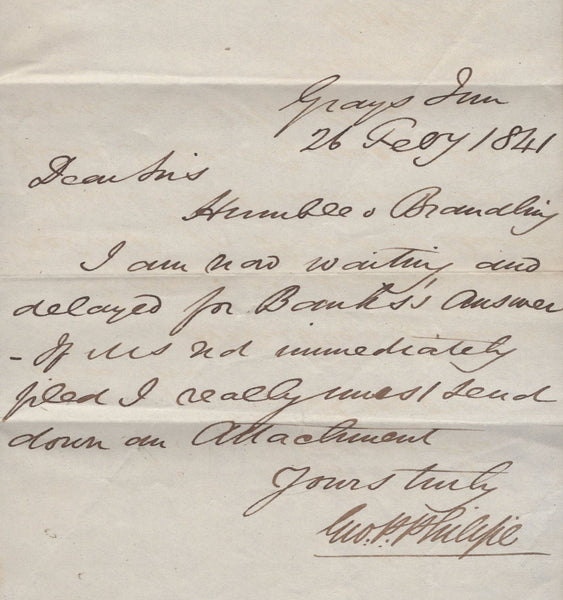 Grays Inn
26 Feby 1841
Dear Sirs
Humble v Brandling
I am now waiting and
delayed for Banks's Answer
- If it is not immediately
filed I really must send
down an Attachment
Yours truly
Geo. H. Philipe